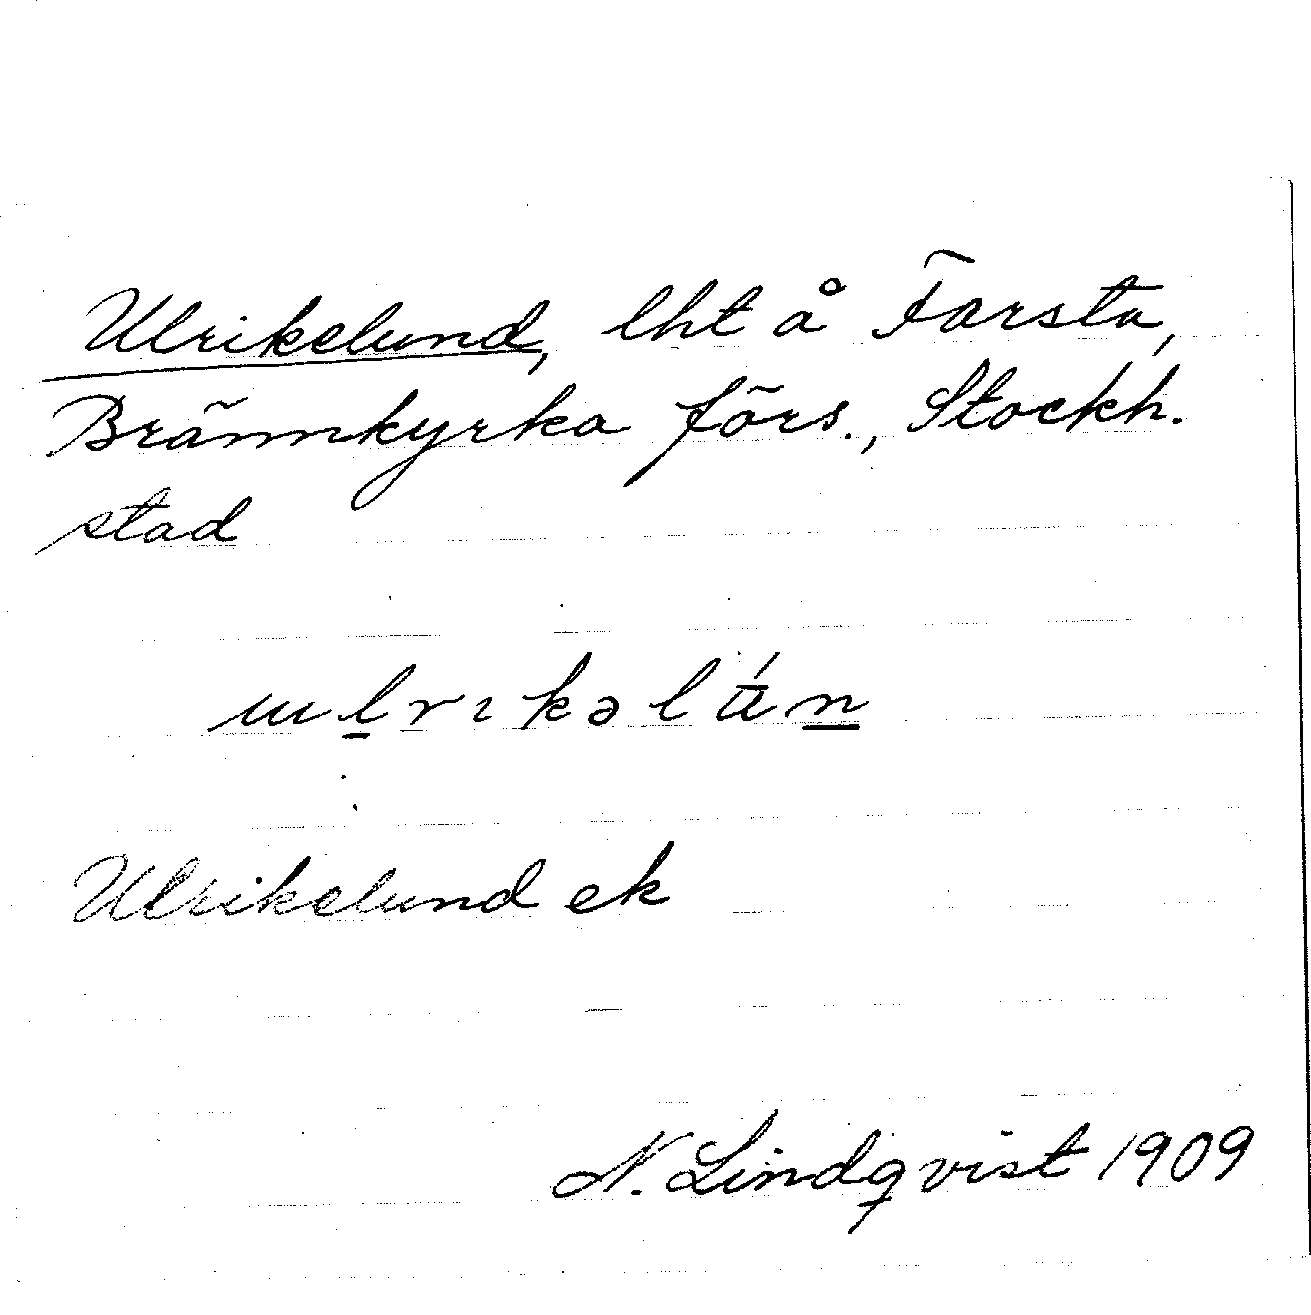 Ulrikelund, lht å Farsta,
Brännkyrka förs., Stockh.
stad
ɯlrıkəlʉ́n
Ulrikelund ek
N. Lindqvist 1909